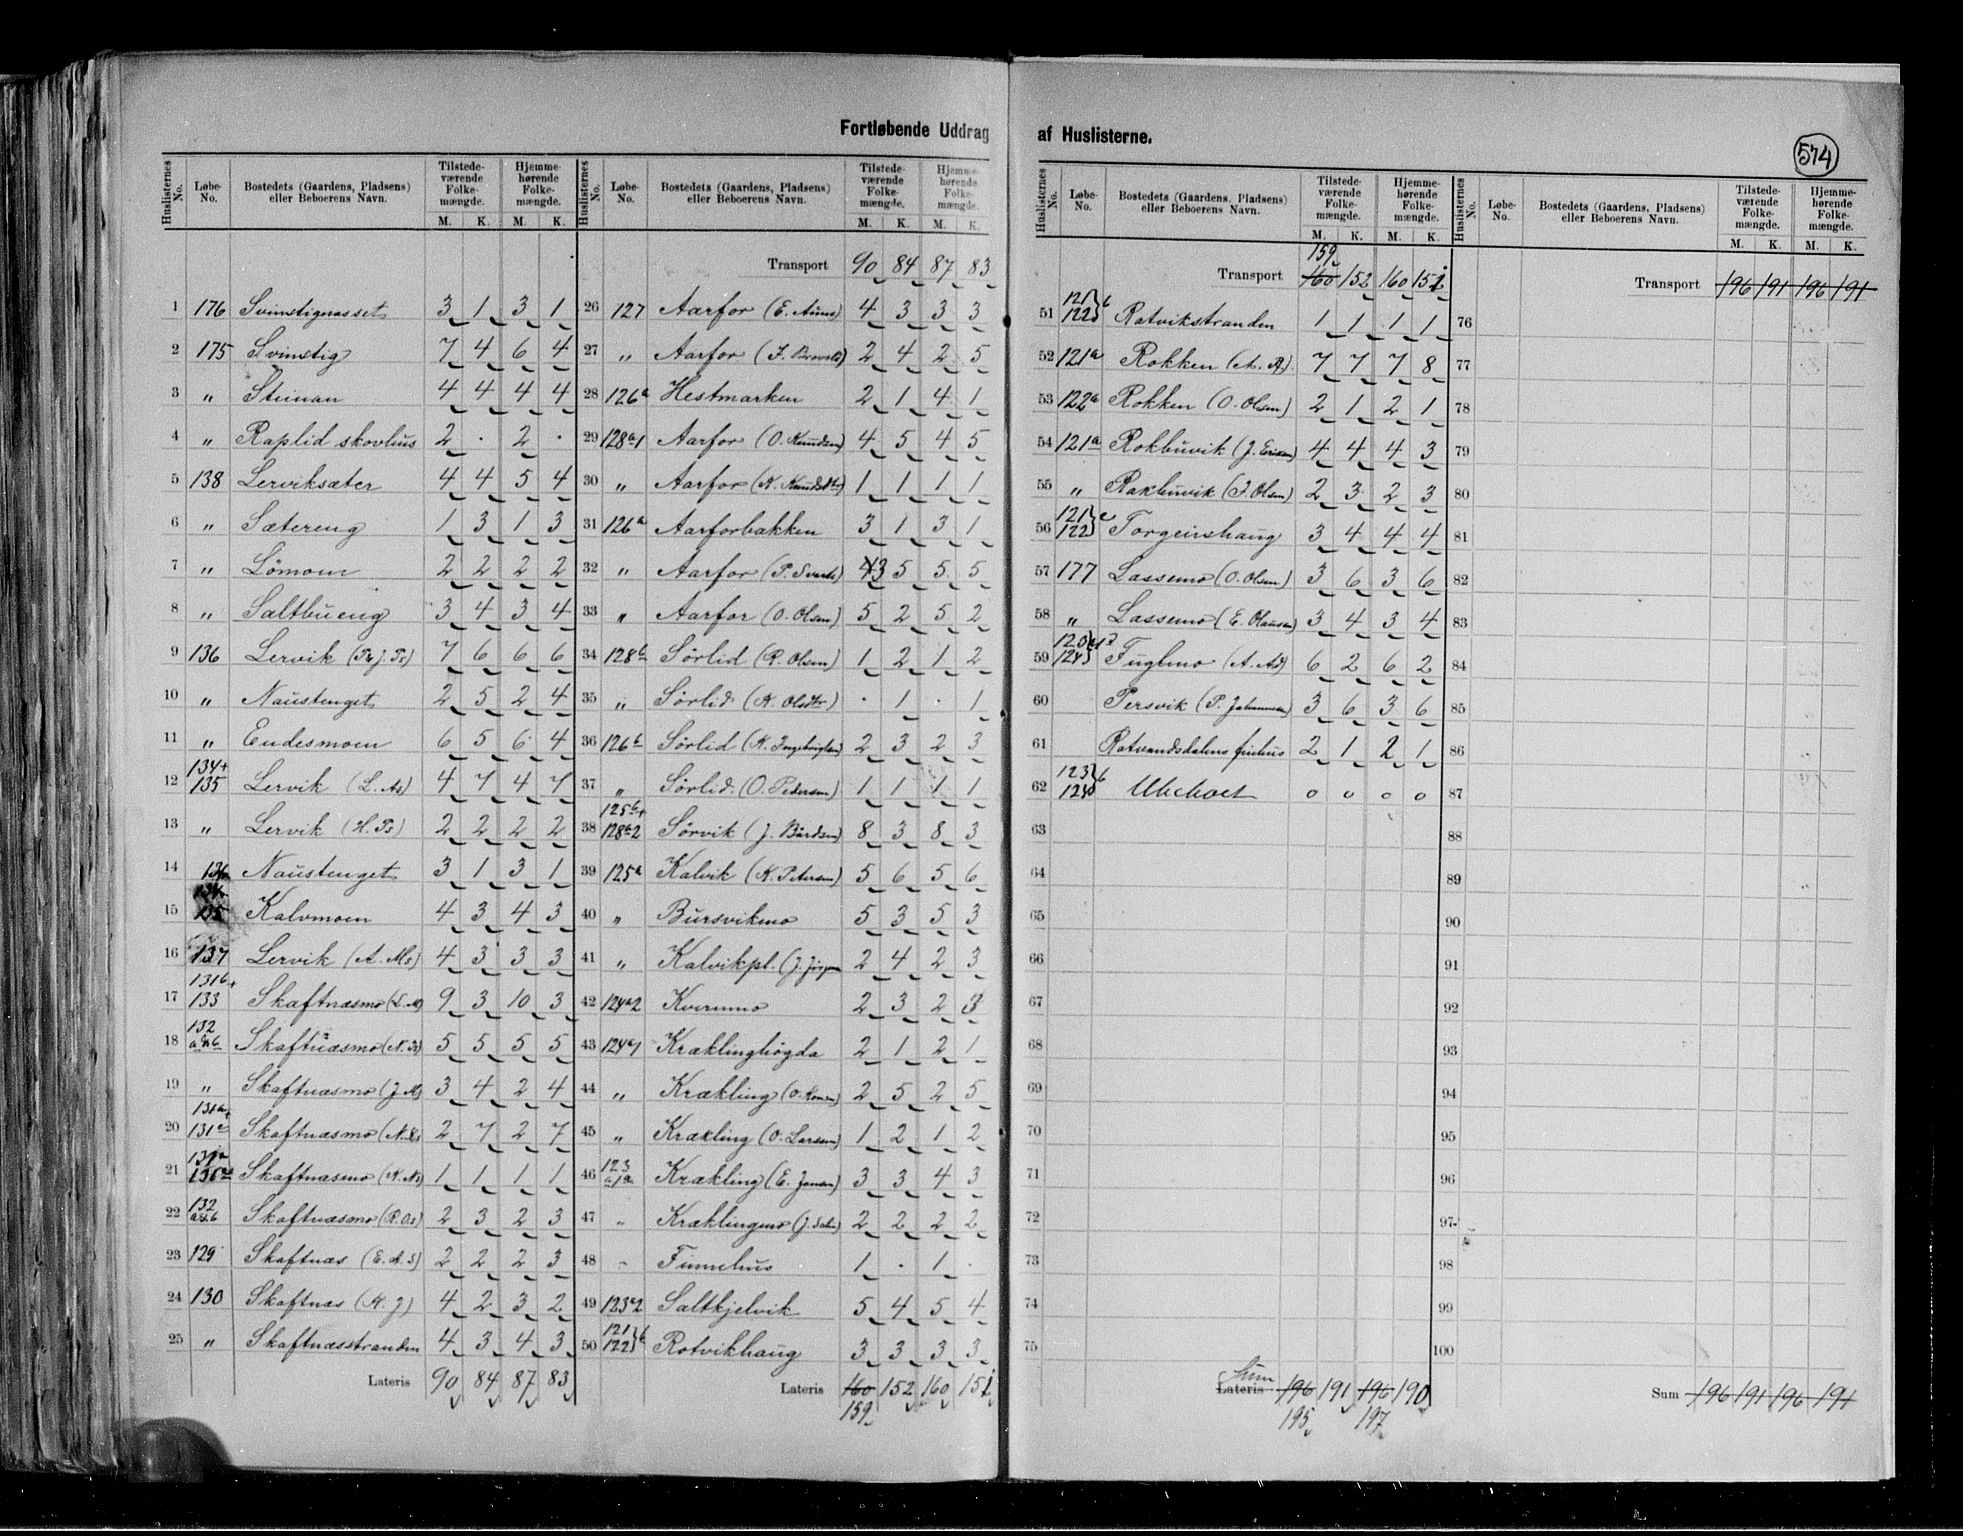 Fortløbende Uddrag af Huslisterne.
574
Huslisternes No. Løbe-No. Bostedets (Gaardens, Pladsens) eller Beboerens Navn. Tilstedeværende Folkemængde. M. K. Hjemmehørende Folkemængde. M. K.
1 176 Svinstignasset 3 1 3 1
2 175 Svinstig 7 4 6 4
3 " Steinan 4 4 4 4
4 " Raplid skovhus 2 . 2 .
5 138 Lerviksæter 4 4 5 4
6 " Sætereng 1 3 1 3
7 " Lömoen 2 2 2 2
8 " Saltbueng 3 4 3 4
9 136 Lervik 7 6 6 6
10 " Naustenget 2 5 2 4
11 " Endesmoen 6 5 6 4
12 134+135 Lervik (L. As) 4 7 4 7
13 " Lervik (H. Ps) 2 2 2 2
14 136 Naustenget 3 1 3 1
15 134+135 Kalvmoen 4 3 4 3
16 137 Lervik (A. Ms) 4 3 3 3
17 131b+133 Skaftnæsmo 9 3 10 3
18 132 a&b Skaftnæsmo 5 5 5 5
19 " Skaftnæsmo (J. Ms) 3 4 2 4
20 131a+131c Skaftnæsmo 2 7 2 7
21 Skaftnæsmo 1 1 1 1
22 132 a&b Skaftnæsmo (R. Os) 2 3 2 3
23 129 Skaftnæs (E. A. S) 2 2 2 3
24 130 Skaftnæs (K. J) 4 2 3 2
25 " Skaftnæsstranden 4 3 4 3
Lateris 90 84 87 83
Transport 90 84 87 83
26 127 Aarfor (E. Aune) 4 3 3 3
27 " Aarfor 2 4 2 5
28 126a Hestmarken 2 1 4 1
29 128a1 Aarfor (O. Knudsen) 4 5 4 5
30 " Aarfor (K. Knudsdtr) 1 1 1 1
31 126a Aarforbakken 3 1 3 1
32 " Aarfor 3 5 5 5
33 " Aarfor (O. Olsen) 5 2 5 2
34 128b Sörlid (R. Olsen) 1 2 1 2
35 " Sörlid (K. Olsdtr) . 1 . 1
36 126b Sörlid (K. Ingebrigtsen) 2 3 2 3
37 " Sörlid (O. Pedersen) 1 1 1 1
38 125b+128a2 Sörvik (J. Bårdsen) 8 3 8 3
39 125a Kalvik (K. Petersen) 5 6 5 6
40 " Bursvikmo 5 3 5 3
41 " Kalvikpl. 2 4 2 3
42 124a2 Kvernmo 2 3 2 3
43 124a1 Kræklinghögda 2 1 2 1
44 " Krækling 2 5 2 5
45 " Krækling (O. Larsen) 1 2 1 2
46 123 a1a Krækling (E. Jonsen) 3 3 4 3
47 " Kræklingmo 2 2 2 2
48 - Finnehus 1 . 1 .
49 123a2 Saltkjelvik 5 4 5 4
50 121 122 b Rotvikhaug 3 3 3 3
Lateris 160 152 160 151
159
159
Transport 160 152 160 151
51 121 122 b Rotvikstranden 1 1 1 1
52 121a Rokken (A. A) 7 7 7 8
53 122a Rokken (O. Olsen) 2 1 2 1
54 121a Rokbuvik (J. Eriksen) 4 4 4 3
55 " Rokbuvik (J. Olsen) 2 3 2 3
56 121 122 c Torgeirshaug 3 4 4 4
57 177 Lassemo (O. Olsen) 3 6 3 6
58 " Lassemo (E. Olausen) 3 4 3 4
59 Fuglmo 6 2 6 2
60 Persvik (P. Johannesen) 3 6 3 6
61 Rotvandsdalens finhus 2 1 2 1
62 123 124 b Ubeboet 0 0 0 0
63
64
65
66
67
68
69
70
71
72
73
74
75
Sum
Lateris 196 191 196 190
195 197
Transport 196 191 196 191
76
77
78
79
80
81
82
83
84
85
86
87
88
89
90
91
92
93
94
95
96
97
98
99
100
Sum 196 191 196 191